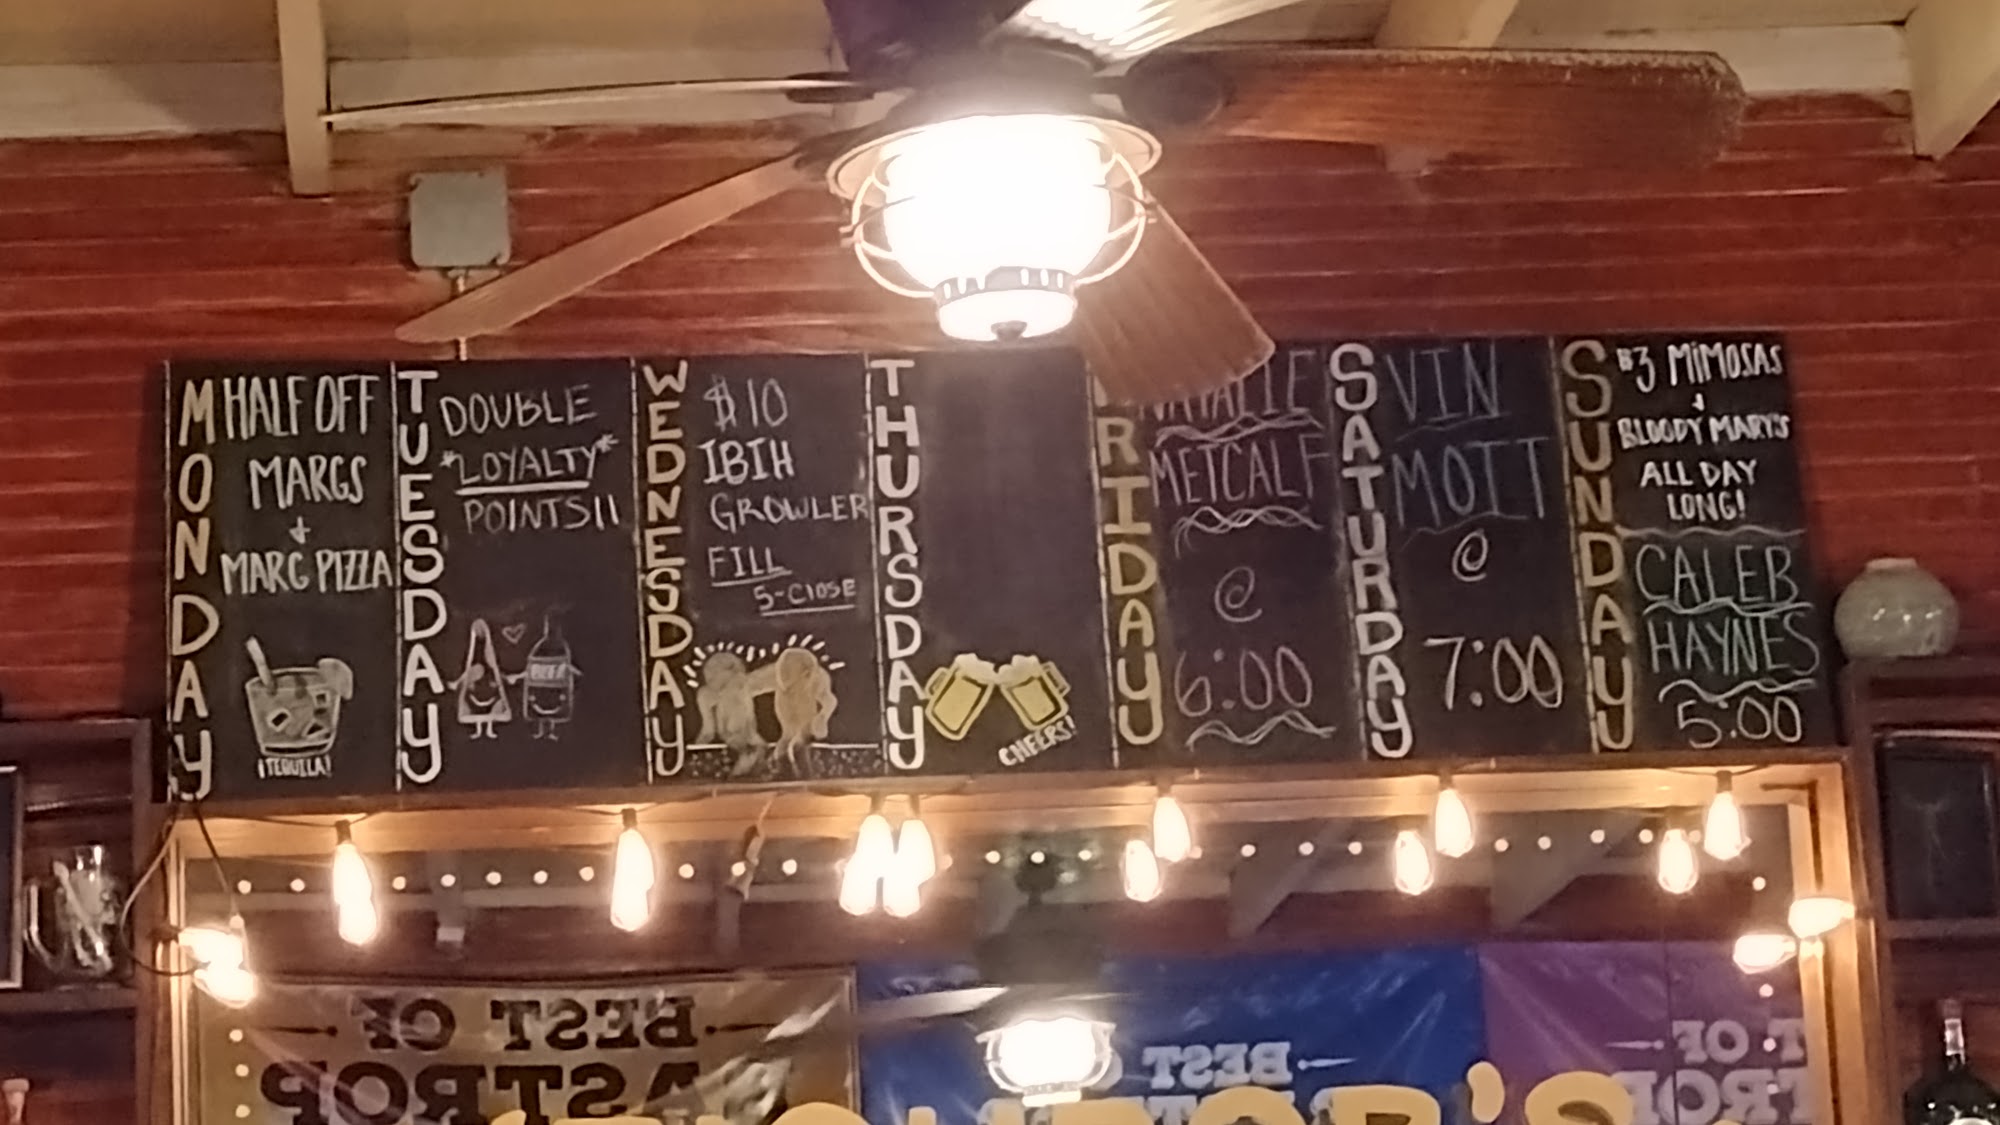 MONDAY
HALF OFF
MARGS
+
MARG PIZZA
¡TEQUILA!
TUESDAY
DOUBLE
*LOYALTY*
POINTS!!
BEER
WEDNESDAY
$10
IBIH
GROWLER
FILL
5-CLOSE
THURSDAY
CHEERS!
FRIDAY
NATALIE
METCALF
@
6:00
SATURDAY
VIN
MOTT
@
7:00
SUNDAY
$3 MIMOSAS
+
BLOODY MARY'S
ALL DAY
LONG!
CALEB
HAYNES
5:00
BEST OF
BEST